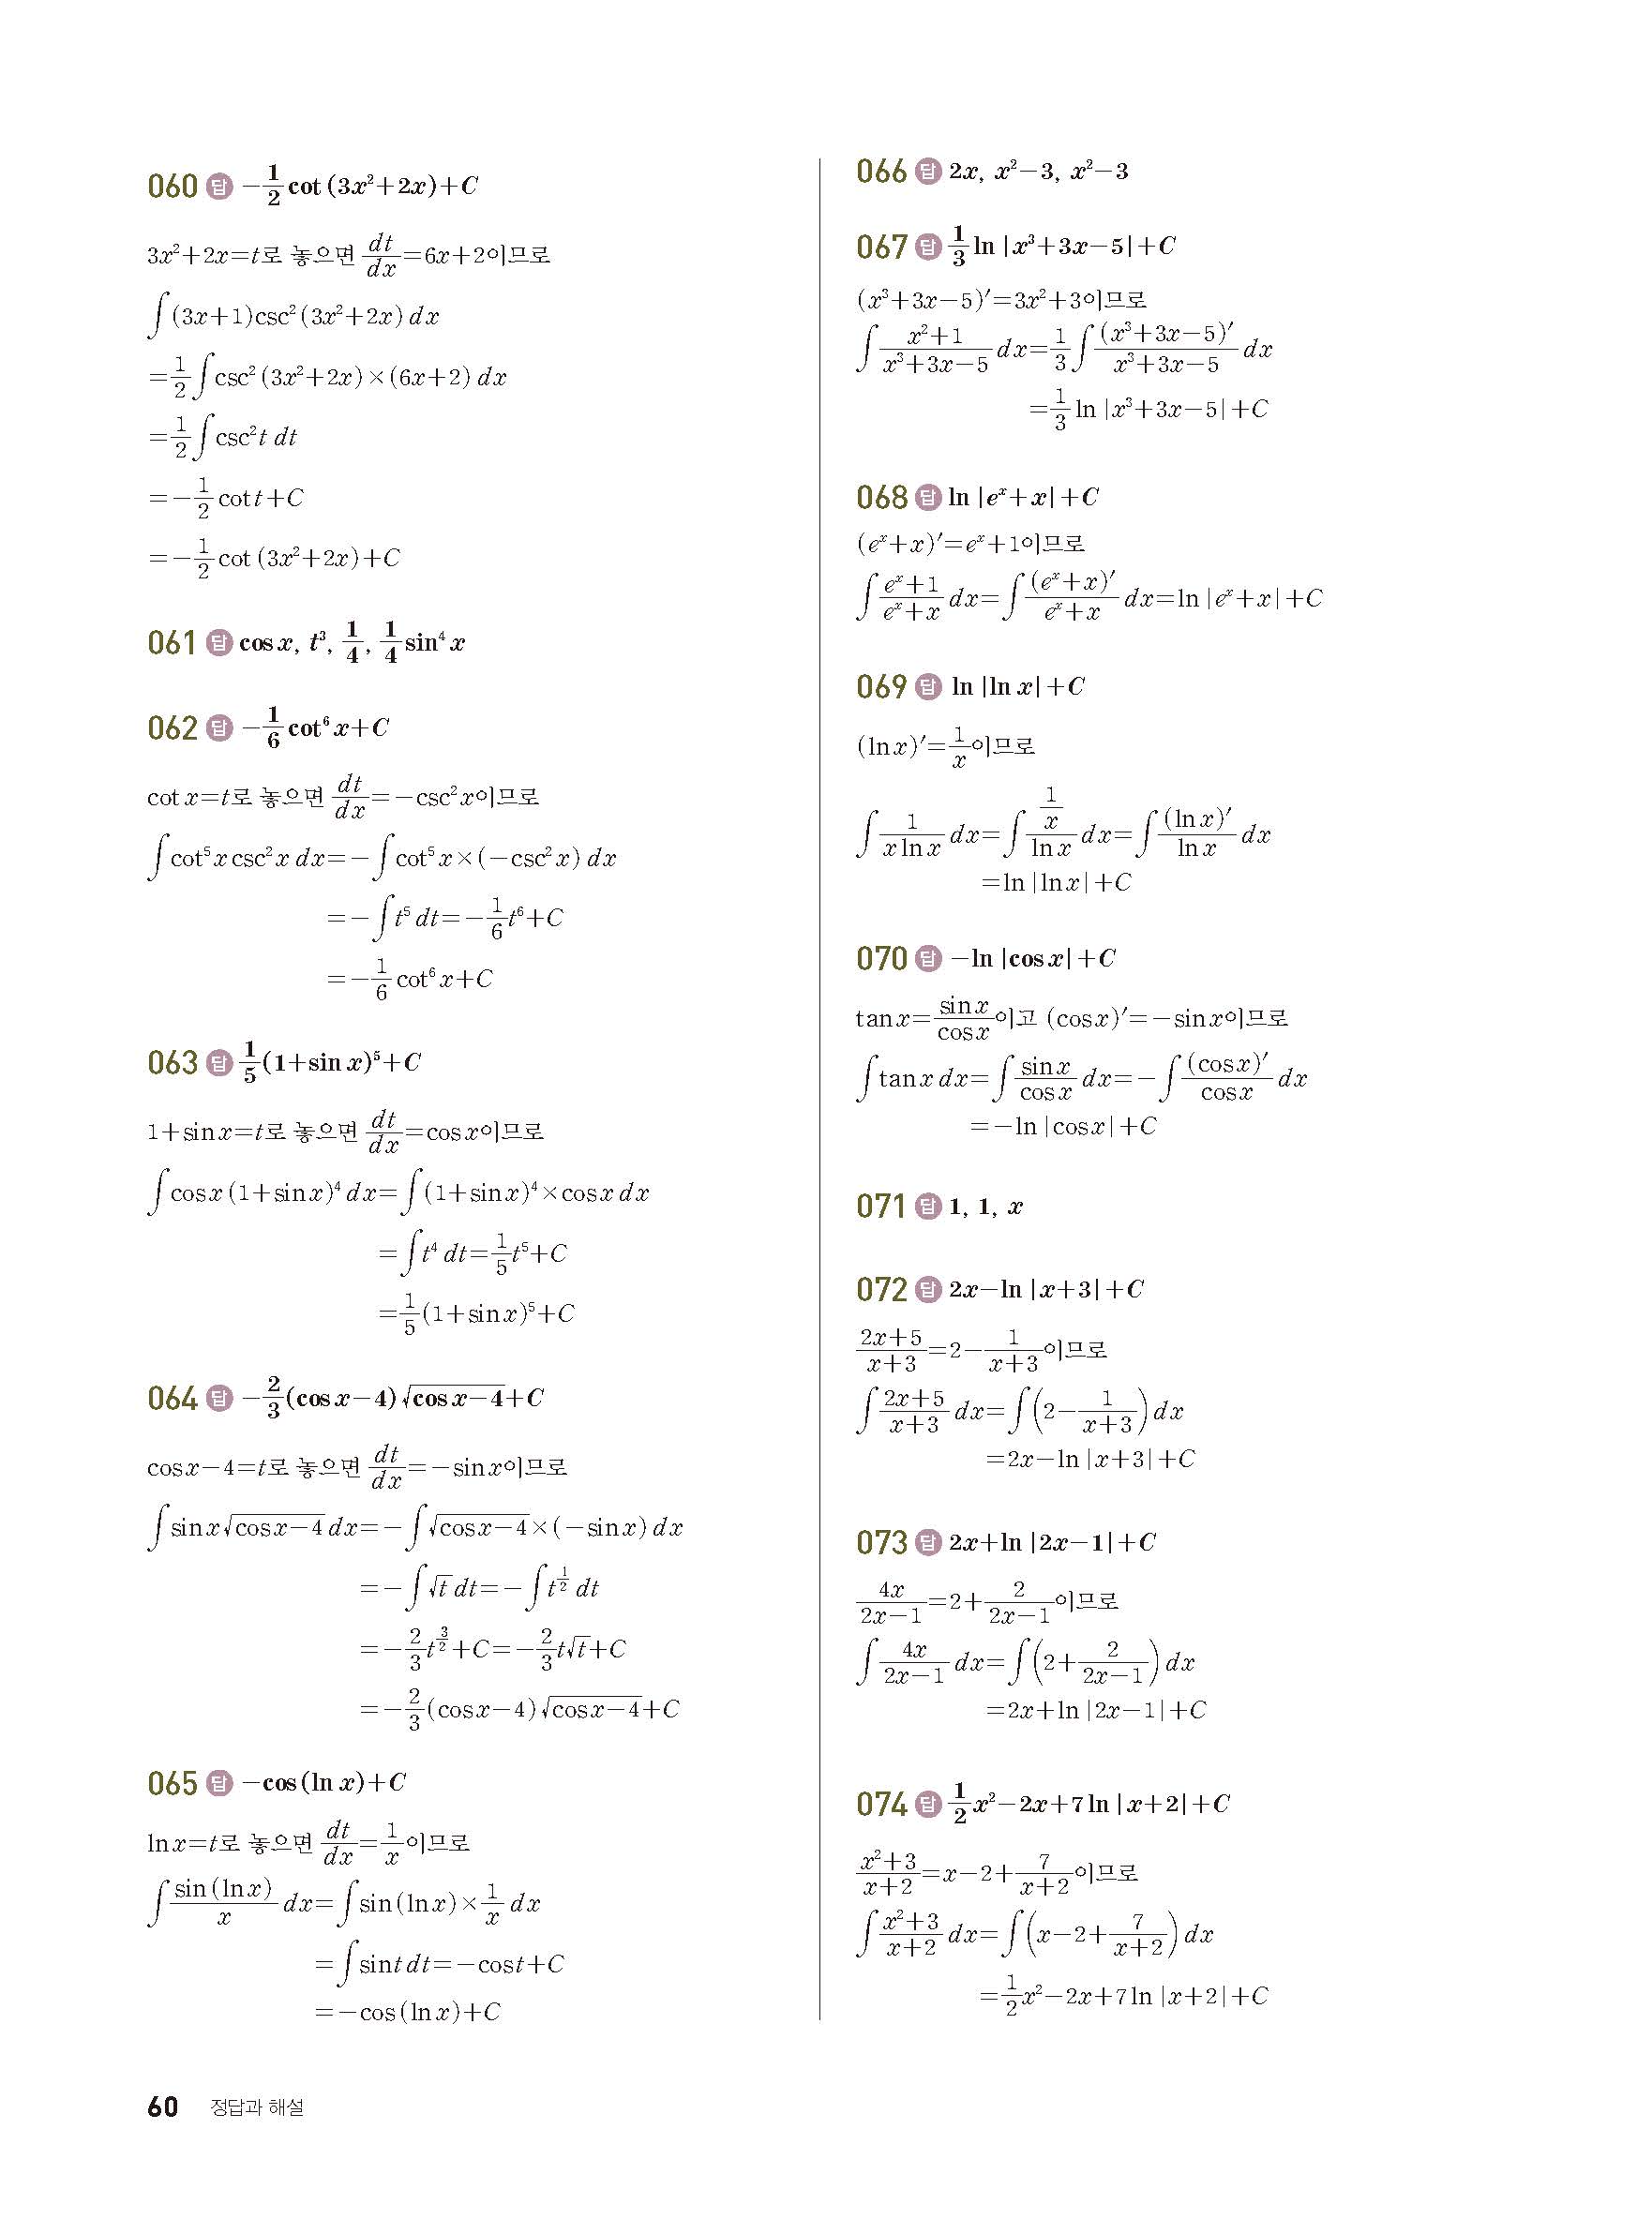 060 답 −1/2 cot (3x²+2x)+C
3x²+2x=t로 놓으면 dt/dx=6x+2이므로
∫(3x+1)csc²(3x²+2x) dx
=1/2∫csc²(3x²+2x)×(6x+2) dx
=1/2∫csc²t dt
=−1/2 cot t+C
=−1/2 cot (3x²+2x)+C
061 답 cos x, t³, 1/4, 1/4 sin⁴ x
062 답 −1/6 cot⁶ x+C
cot x=t로 놓으면 dt/dx=−csc² x이므로
∫cot⁵ x csc² x dx=−∫cot⁵ x×(−csc² x) dx
=−∫t⁵ dt=−1/6 t⁶+C
=−1/6 cot⁶ x+C
063 답 1/5(1+sin x)⁵+C
1+sin x=t로 놓으면 dt/dx=cos x이므로
∫cos x (1+sin x)⁴ dx=∫(1+sin x)⁴×cos x dx
=∫t⁴ dt=1/5 t⁵+C
=1/5(1+sin x)⁵+C
064 답 −2/3(cos x−4)√(cos x−4)+C
cos x−4=t로 놓으면 dt/dx=−sin x이므로
∫sin x√(cos x−4) dx=−∫√(cos x−4)×(−sin x) dx
=−∫√t dt=−∫t^(1/2) dt
=−2/3 t^(3/2)+C=−2/3 t√t+C
=−2/3(cos x−4)√(cos x−4)+C
065 답 −cos (ln x)+C
ln x=t로 놓으면 dt/dx=1/x이므로
∫sin (ln x)/x dx=∫sin (ln x)×1/x dx
=∫sin t dt=−cos t+C
=−cos (ln x)+C
066 답 2x, x²−3, x²−3
067 답 1/3 ln |x³+3x−5|+C
(x³+3x−5)′=3x²+3이므로
∫(x²+1)/(x³+3x−5) dx=1/3∫(x³+3x−5)′/(x³+3x−5) dx
=1/3 ln |x³+3x−5|+C
068 답 ln |eˣ+x|+C
(eˣ+x)′=eˣ+1이므로
∫(eˣ+1)/(eˣ+x) dx=∫(eˣ+x)′/(eˣ+x) dx=ln |eˣ+x|+C
069 답 ln |ln x|+C
(ln x)′=1/x이므로
∫1/(x ln x) dx=∫(1/x)/(ln x) dx=∫(ln x)′/(ln x) dx
=ln |ln x|+C
070 답 −ln |cos x|+C
tan x=sin x/cos x이고 (cos x)′=−sin x이므로
∫tan x dx=∫sin x/cos x dx=−∫(cos x)′/cos x dx
=−ln |cos x|+C
071 답 1, 1, x
072 답 2x−ln |x+3|+C
(2x+5)/(x+3)=2−1/(x+3)이므로
∫(2x+5)/(x+3) dx=∫(2−1/(x+3))dx
=2x−ln |x+3|+C
073 답 2x+ln |2x−1|+C
4x/(2x−1)=2+2/(2x−1)이므로
∫4x/(2x−1) dx=∫(2+2/(2x−1))dx
=2x+ln |2x−1|+C
074 답 1/2 x²−2x+7 ln |x+2|+C
(x²+3)/(x+2)=x−2+7/(x+2)이므로
∫(x²+3)/(x+2) dx=∫(x−2+7/(x+2))dx
=1/2 x²−2x+7 ln |x+2|+C
60 정답과 해설